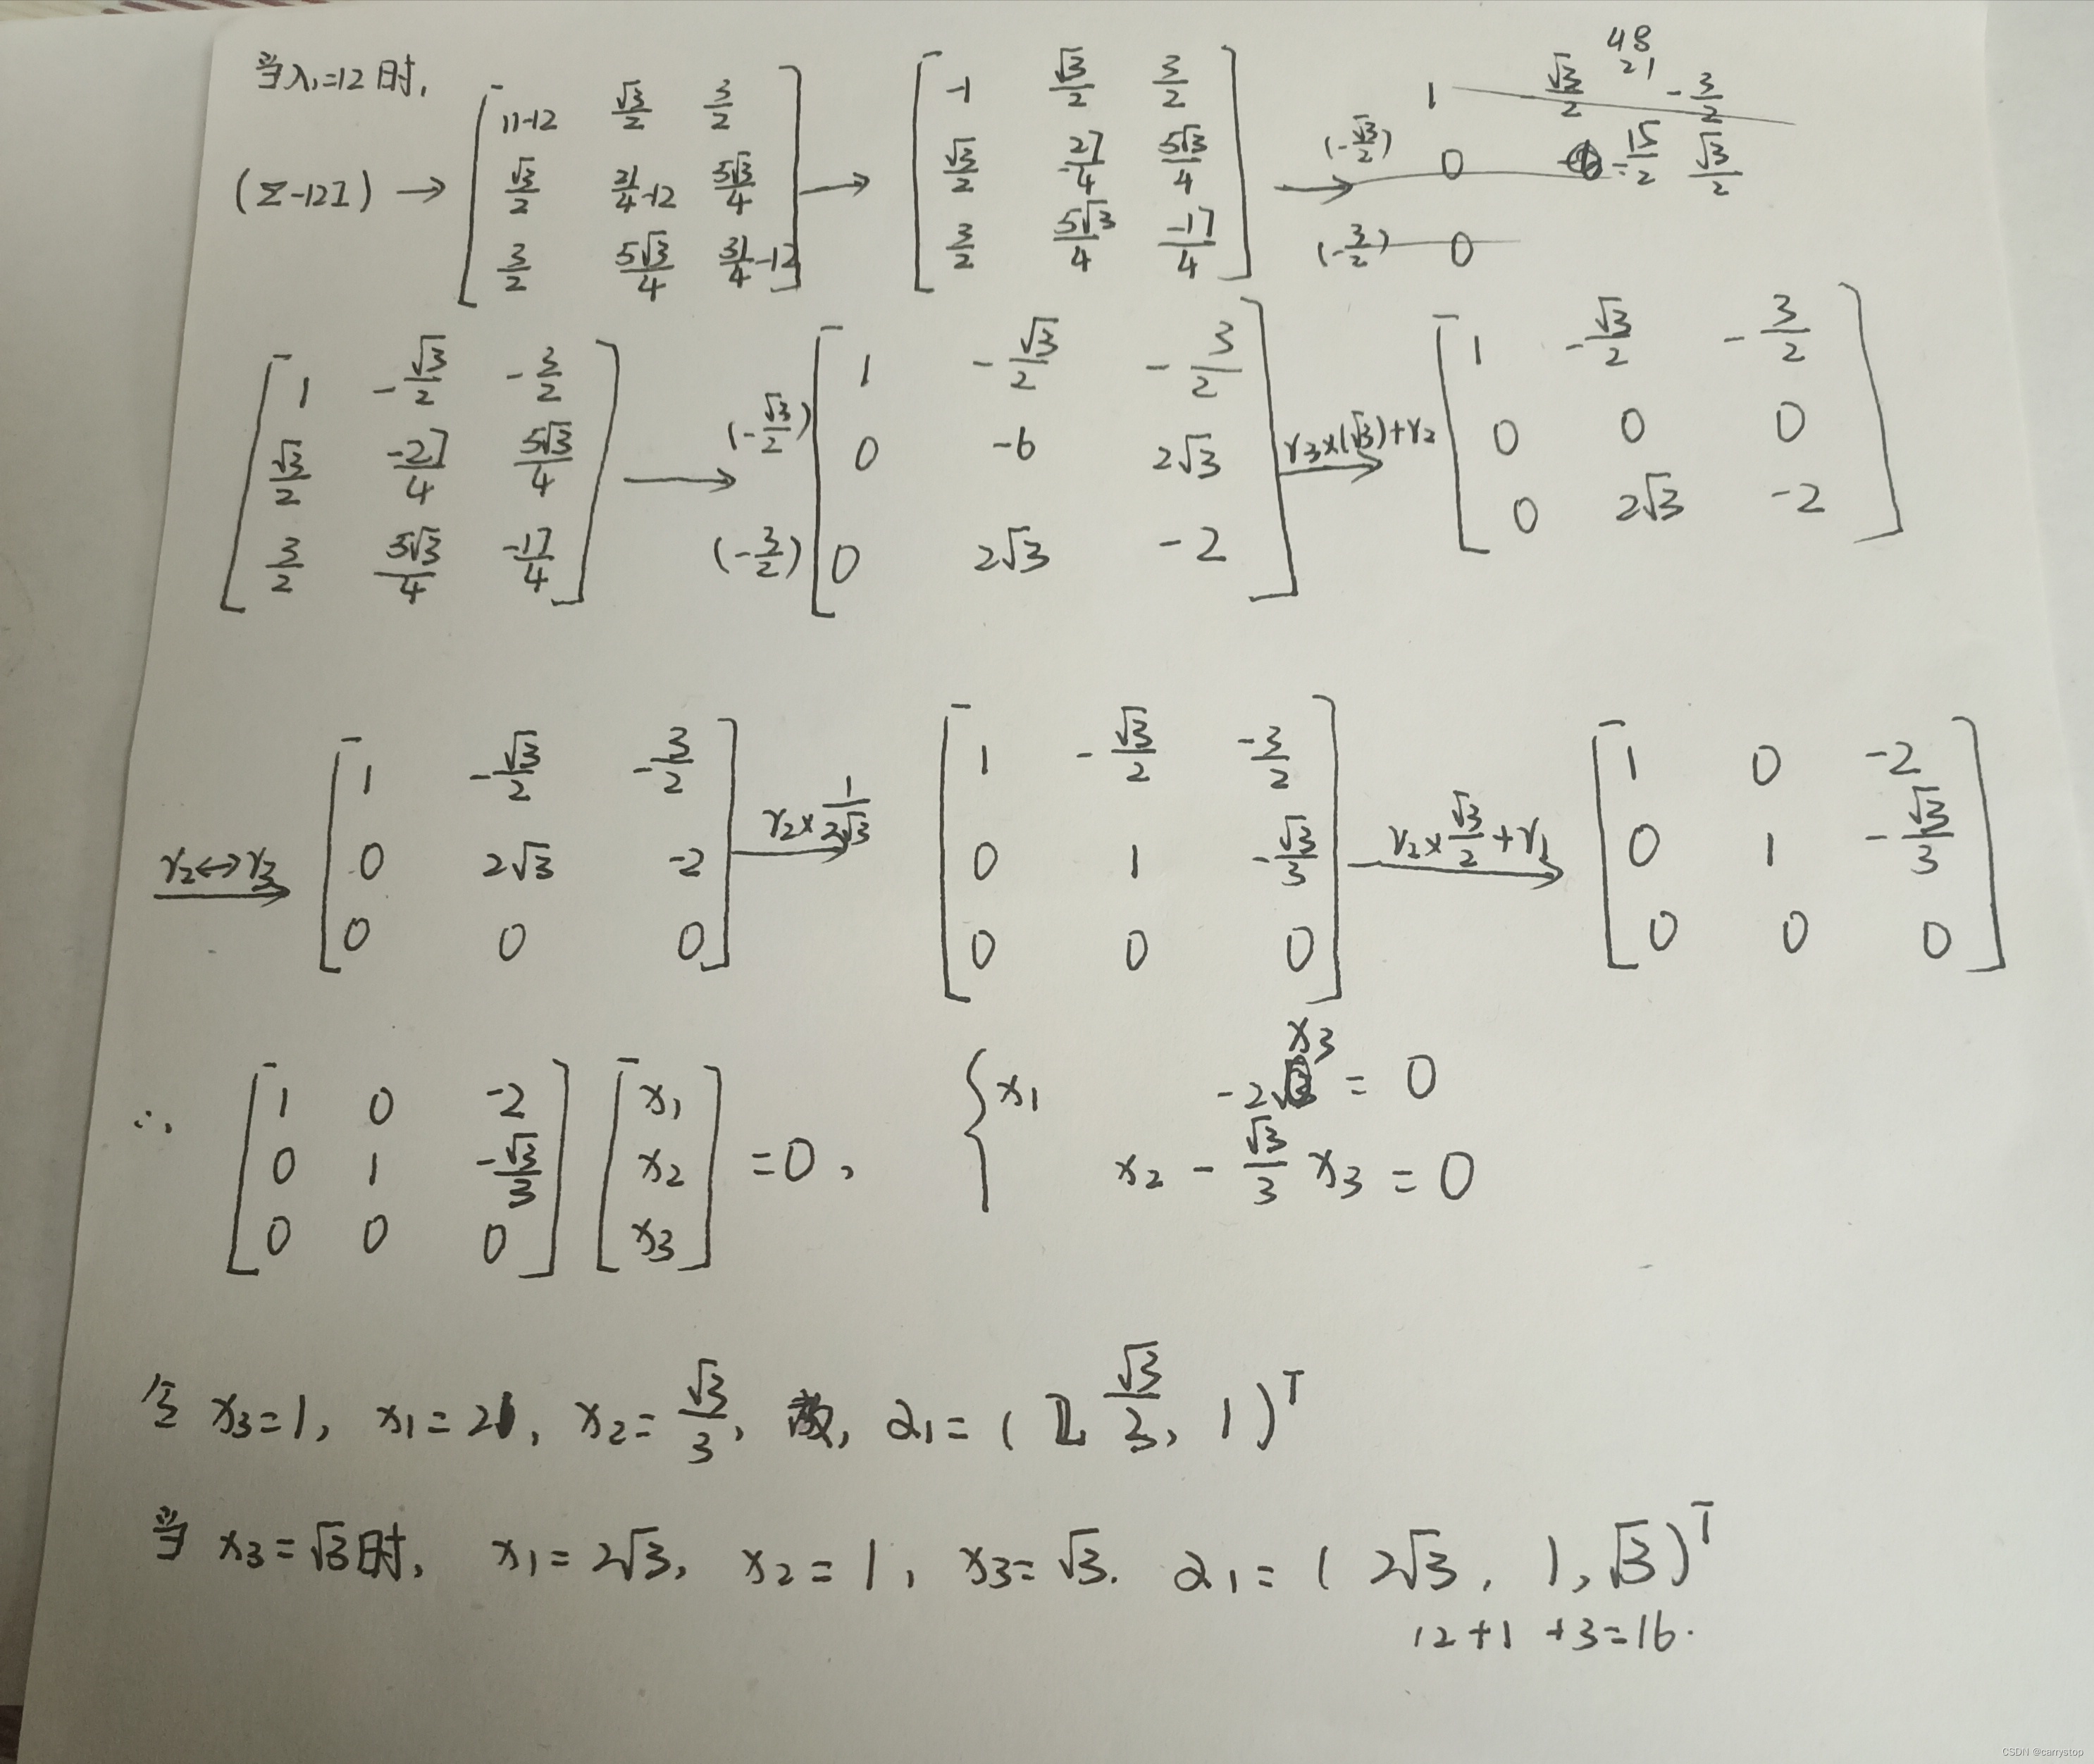 当λ₁=12时,
(Σ-12I) → [11-12 √3/2 3/2; √3/2 21/4-12 5√3/4; 3/2 5√3/4 31/4-12] → [-1 √3/2 3/2; √3/2 -27/4 5√3/4; 3/2 5√3/4 -17/4] →
48
21
1 √3/2 -3/2
(-√3/2) 0 -15/2 √3/2
(-3/2) 0
[1 -√3/2 -3/2; √3/2 -27/4 5√3/4; 3/2 5√3/4 -17/4] → (-√3/2) (-3/2) [1 -√3/2 -3/2; 0 -6 2√3; 0 2√3 -2] r₃×(√3)+r₂ → [1 -√3/2 -3/2; 0 0 0; 0 2√3 -2]
r₂↔r₃ → [1 -√3/2 -3/2; 0 2√3 -2; 0 0 0] r₂×1/2√3 → [1 -√3/2 -3/2; 0 1 -√3/3; 0 0 0] r₂×√3/2+r₁ → [1 0 -2; 0 1 -√3/3; 0 0 0]
∴ [1 0 -2; 0 1 -√3/3; 0 0 0] [x₁; x₂; x₃] =0, { x₁ -2x₃ = 0
x₂ - √3/3 x₃ = 0
令 x₃=1, x₁=2, x₂=√3/3, α₁=(2 √3/3, 1)ᵀ
当 x₃=√3时, x₁=2√3, x₂=1, x₃=√3. α₁=(2√3, 1, √3)ᵀ
12+1+3=16.
CSDN @carrystop